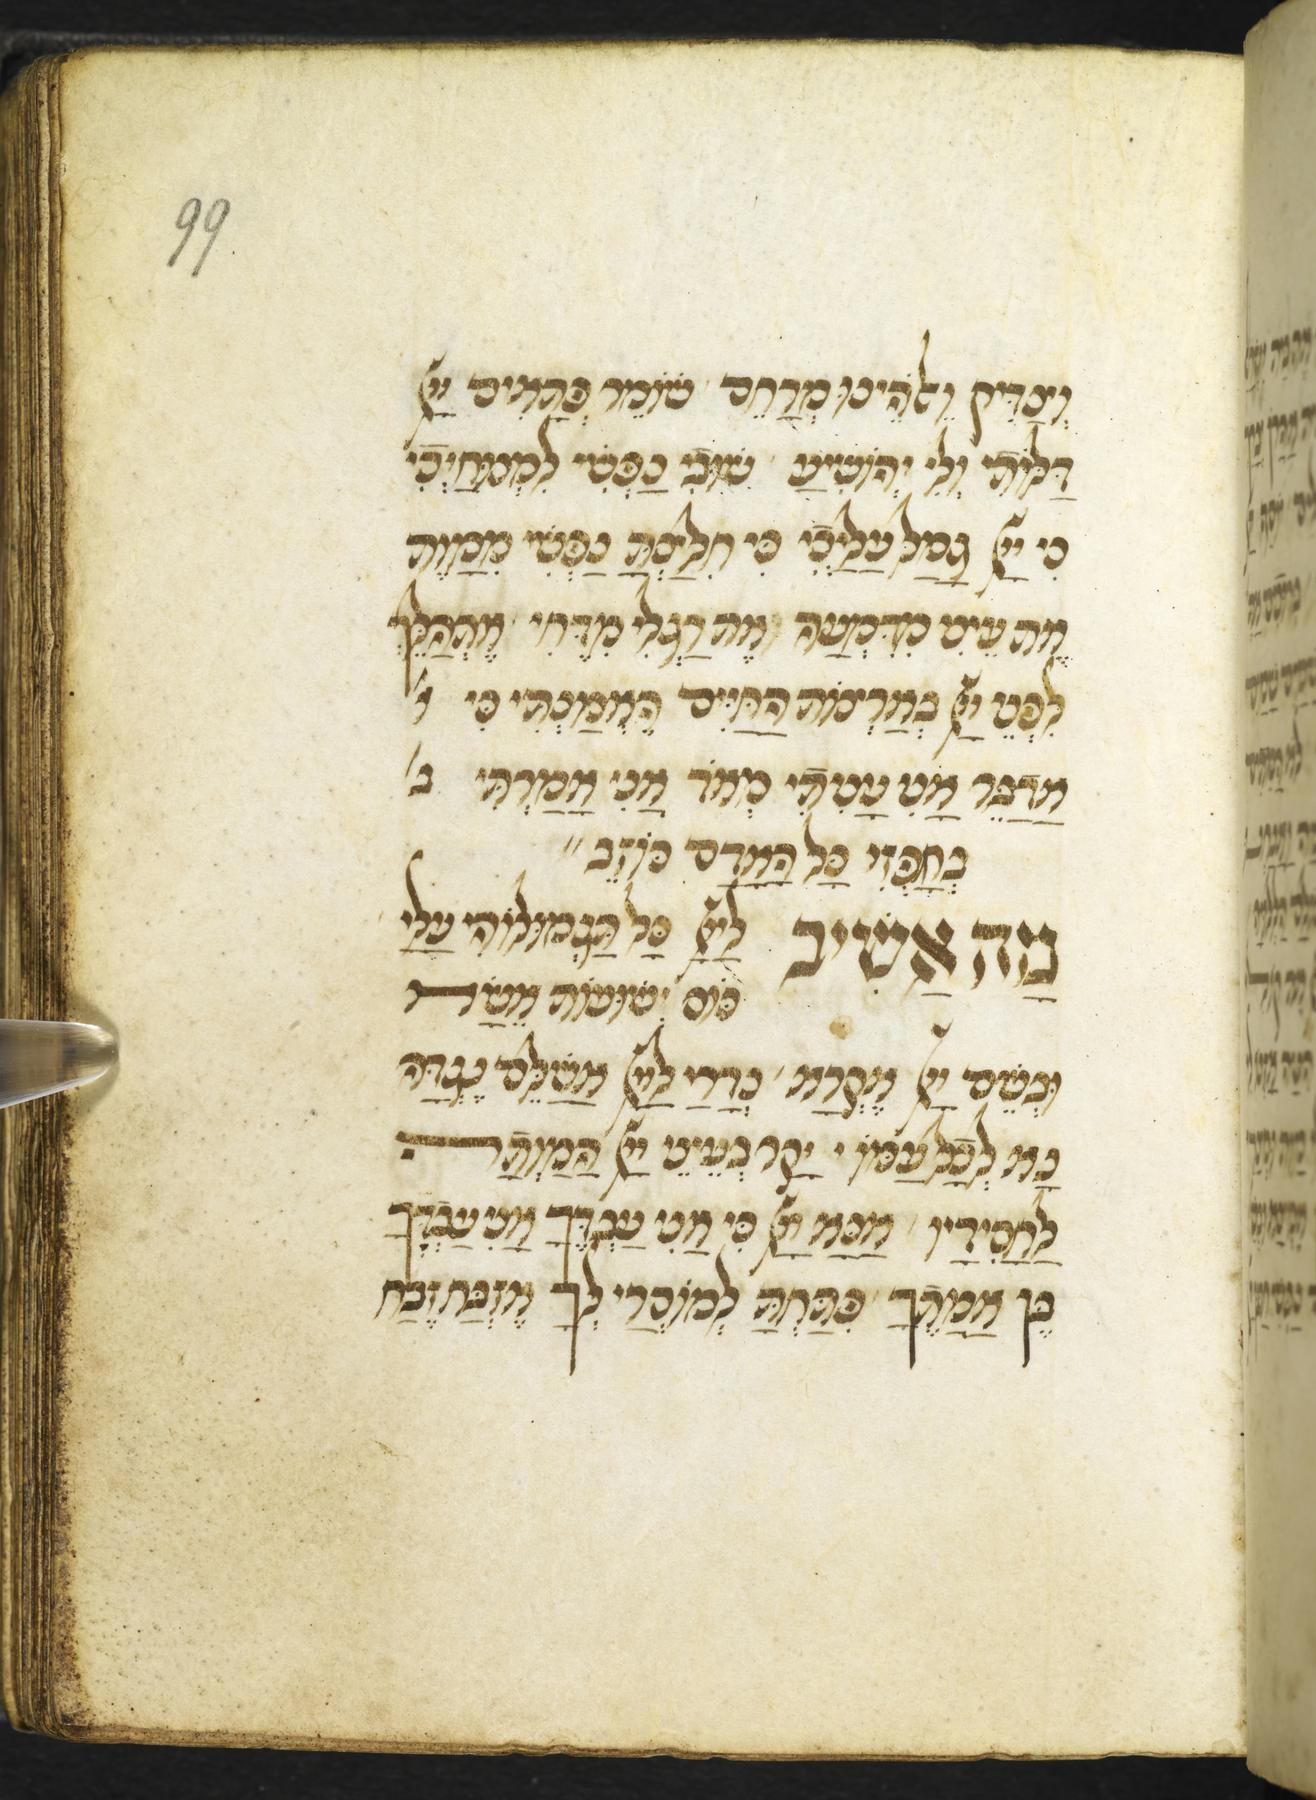 99
וְצַדִּיק וֵאלֹהֵינוּ מְרַחֵם שׁוֹמֵר פְּתָאִים יְיָ
דַּלּוֹתִי וְלִי יְהוֹשִׁיעַ שׁוּבִי נַפְשִׁי לִמְנוּחָיְכִי
כִּי יְיָ גָּמַל עָלָיְכִי כִּי חִלַּצְתָּ נַפְשִׁי מִמָּוֶת
אֶת עֵינִי מִדִּמְעָה אֶת רַגְלִי מִדֶּחִי אֶתְהַלֵּךְ
לִפְנֵי יְיָ בְּאַרְצוֹת הַחַיִּים הֶאֱמַנְתִּי כִּי א
אֲדַבֵּר אֲנִי עָנִיתִי מְאֹד אֲנִי אָמַרְתִּי ב
בְחָפְזִי כָּל הָאָדָם כּוֹזֵב
מָה אָשִׁיב לַייָ כָּל תַּגְמוּלוֹהִי עָלָי
כּוֹס יְשׁוּעוֹת אֶשָּׂא
וּבְשֵׁם יְיָ אֶקְרָא נְדָרַי לַייָ אֲשַׁלֵּם נֶגְדָה
נָּא לְכָל עַמּוֹ יָקָר בְּעֵינֵי יְיָ הַמָּוְתָה
לַחֲסִידָיו אָנָּא יְיָ כִּי אֲנִי עַבְדֶּךָ אֲנִי עַבְדְּךָ
בֶּן אֲמָתֶךָ פִּתַּחְתָּ לְמוֹסֵרָי לְךָ אֶזְבַּח זֶבַח